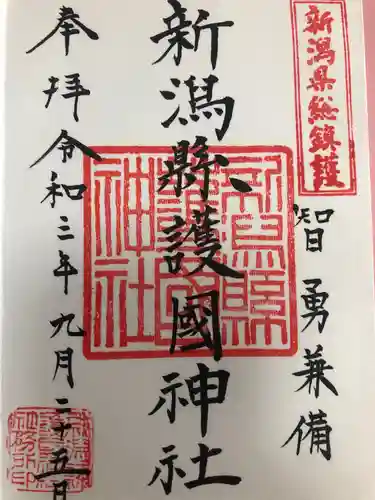 新潟県総鎮護
智勇兼備
新潟縣護國神社
新潟縣護國神社
奉拝令和三年九月二十五日